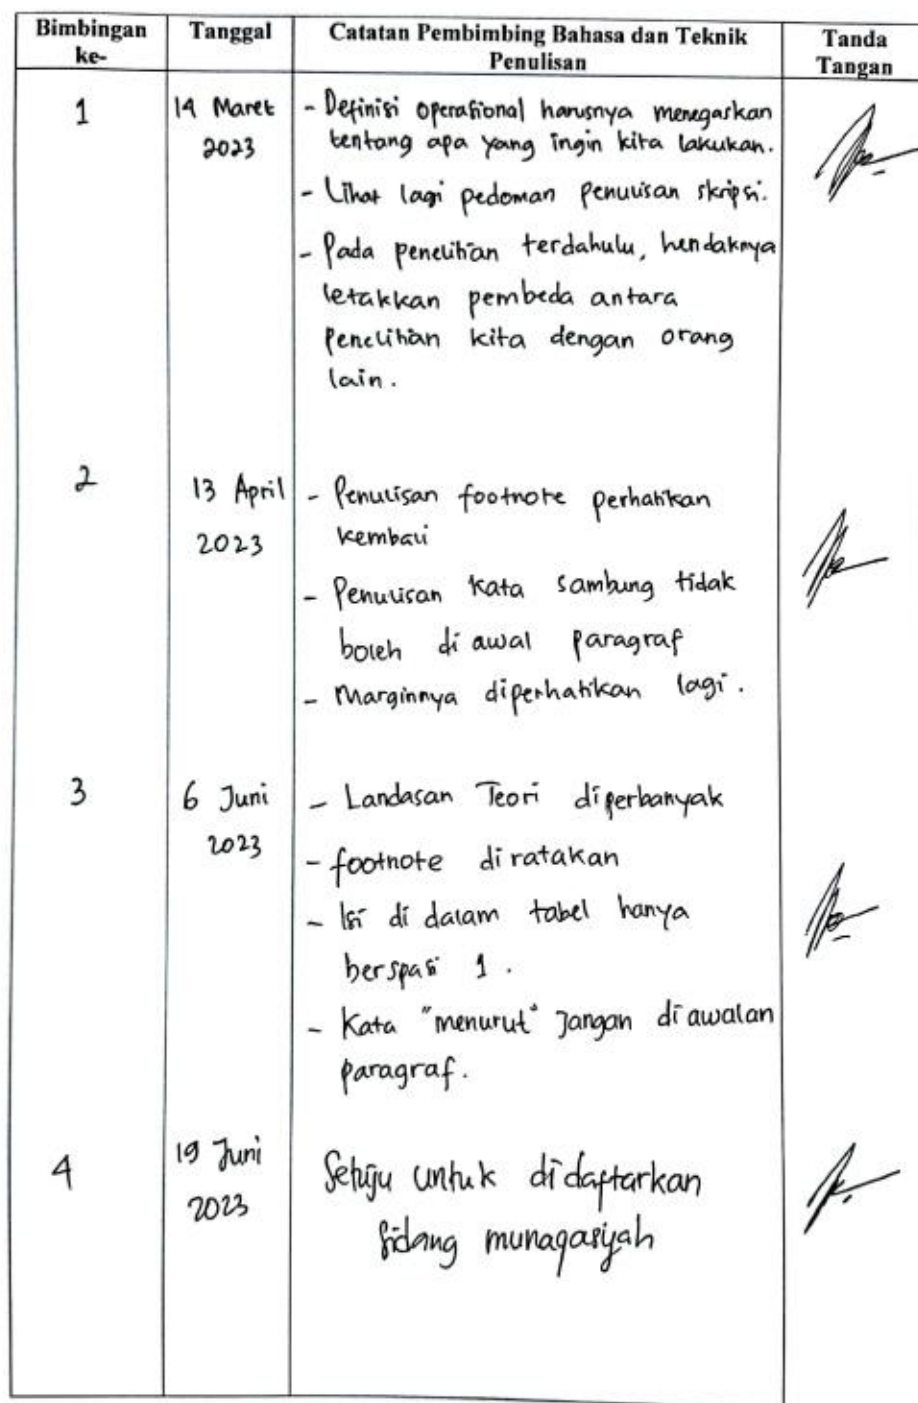 Bimbingan ke-
Tanggal
Catatan Pembimbing Bahasa dan Teknik Penulisan
Tanda Tangan
1
14 Maret
2023
- Definisi operasional harusnya menegaskan
tentang apa yang ingin kita lakukan.
- Lihat lagi pedoman penulisan skripsi.
- Pada penelitian terdahulu, hendaknya
letakkan pembeda antara
Penelitian kita dengan orang
lain.
2
13 April
2023
- Penulisan footnote perhatikan
kembali
- Penulisan kata sambung tidak
boleh di awal paragraf
- Marginnya diperhatikan lagi.
3
6 Juni
2023
- Landasan Teori diperbanyak
- footnote diratakan
- Isi di dalam tabel hanya
berspasi 1.
- Kata "menurut" Jangan di awalan
paragraf.
4
19 Juni
2023
Setuju untuk didaftarkan
sidang munaqasyah